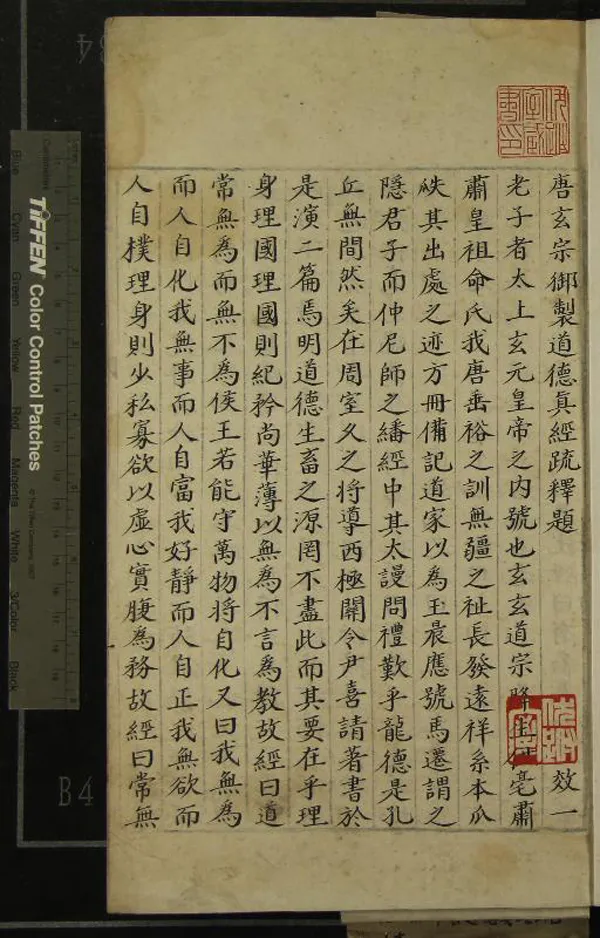 唐玄宗御製道德真經疏釋題
效一
老子者太上玄元皇帝之內號也玄玄道宗降生伊亳肅
肅皇祖命氏我唐垂裕之訓無疆之祉長發遠祥系本瓜
瓞其出處之迹方冊備記道家以為玉晨應號馬遷謂之
隱君子而仲尼師之繙經中其太謾問禮歎乎龍德是孔
丘無間然矣在周室久之將導西極關令尹喜請著書於
是演二篇焉明道德生畜之源罔不盡此而其要在乎理
身理國理國則紀矜尚華薄以無為不言為教故經曰道
常無為而無不為侯王若能守萬物將自化又曰我無為
而人自化我無事而人自富我好靜而人自正我無欲而
人自樸理身則少私寡欲以虛心實腹為務故經曰常無
TIFFEN Color Control Patches
Blue Cyan Green Yellow Red Magenta White 3/Color Black
B4